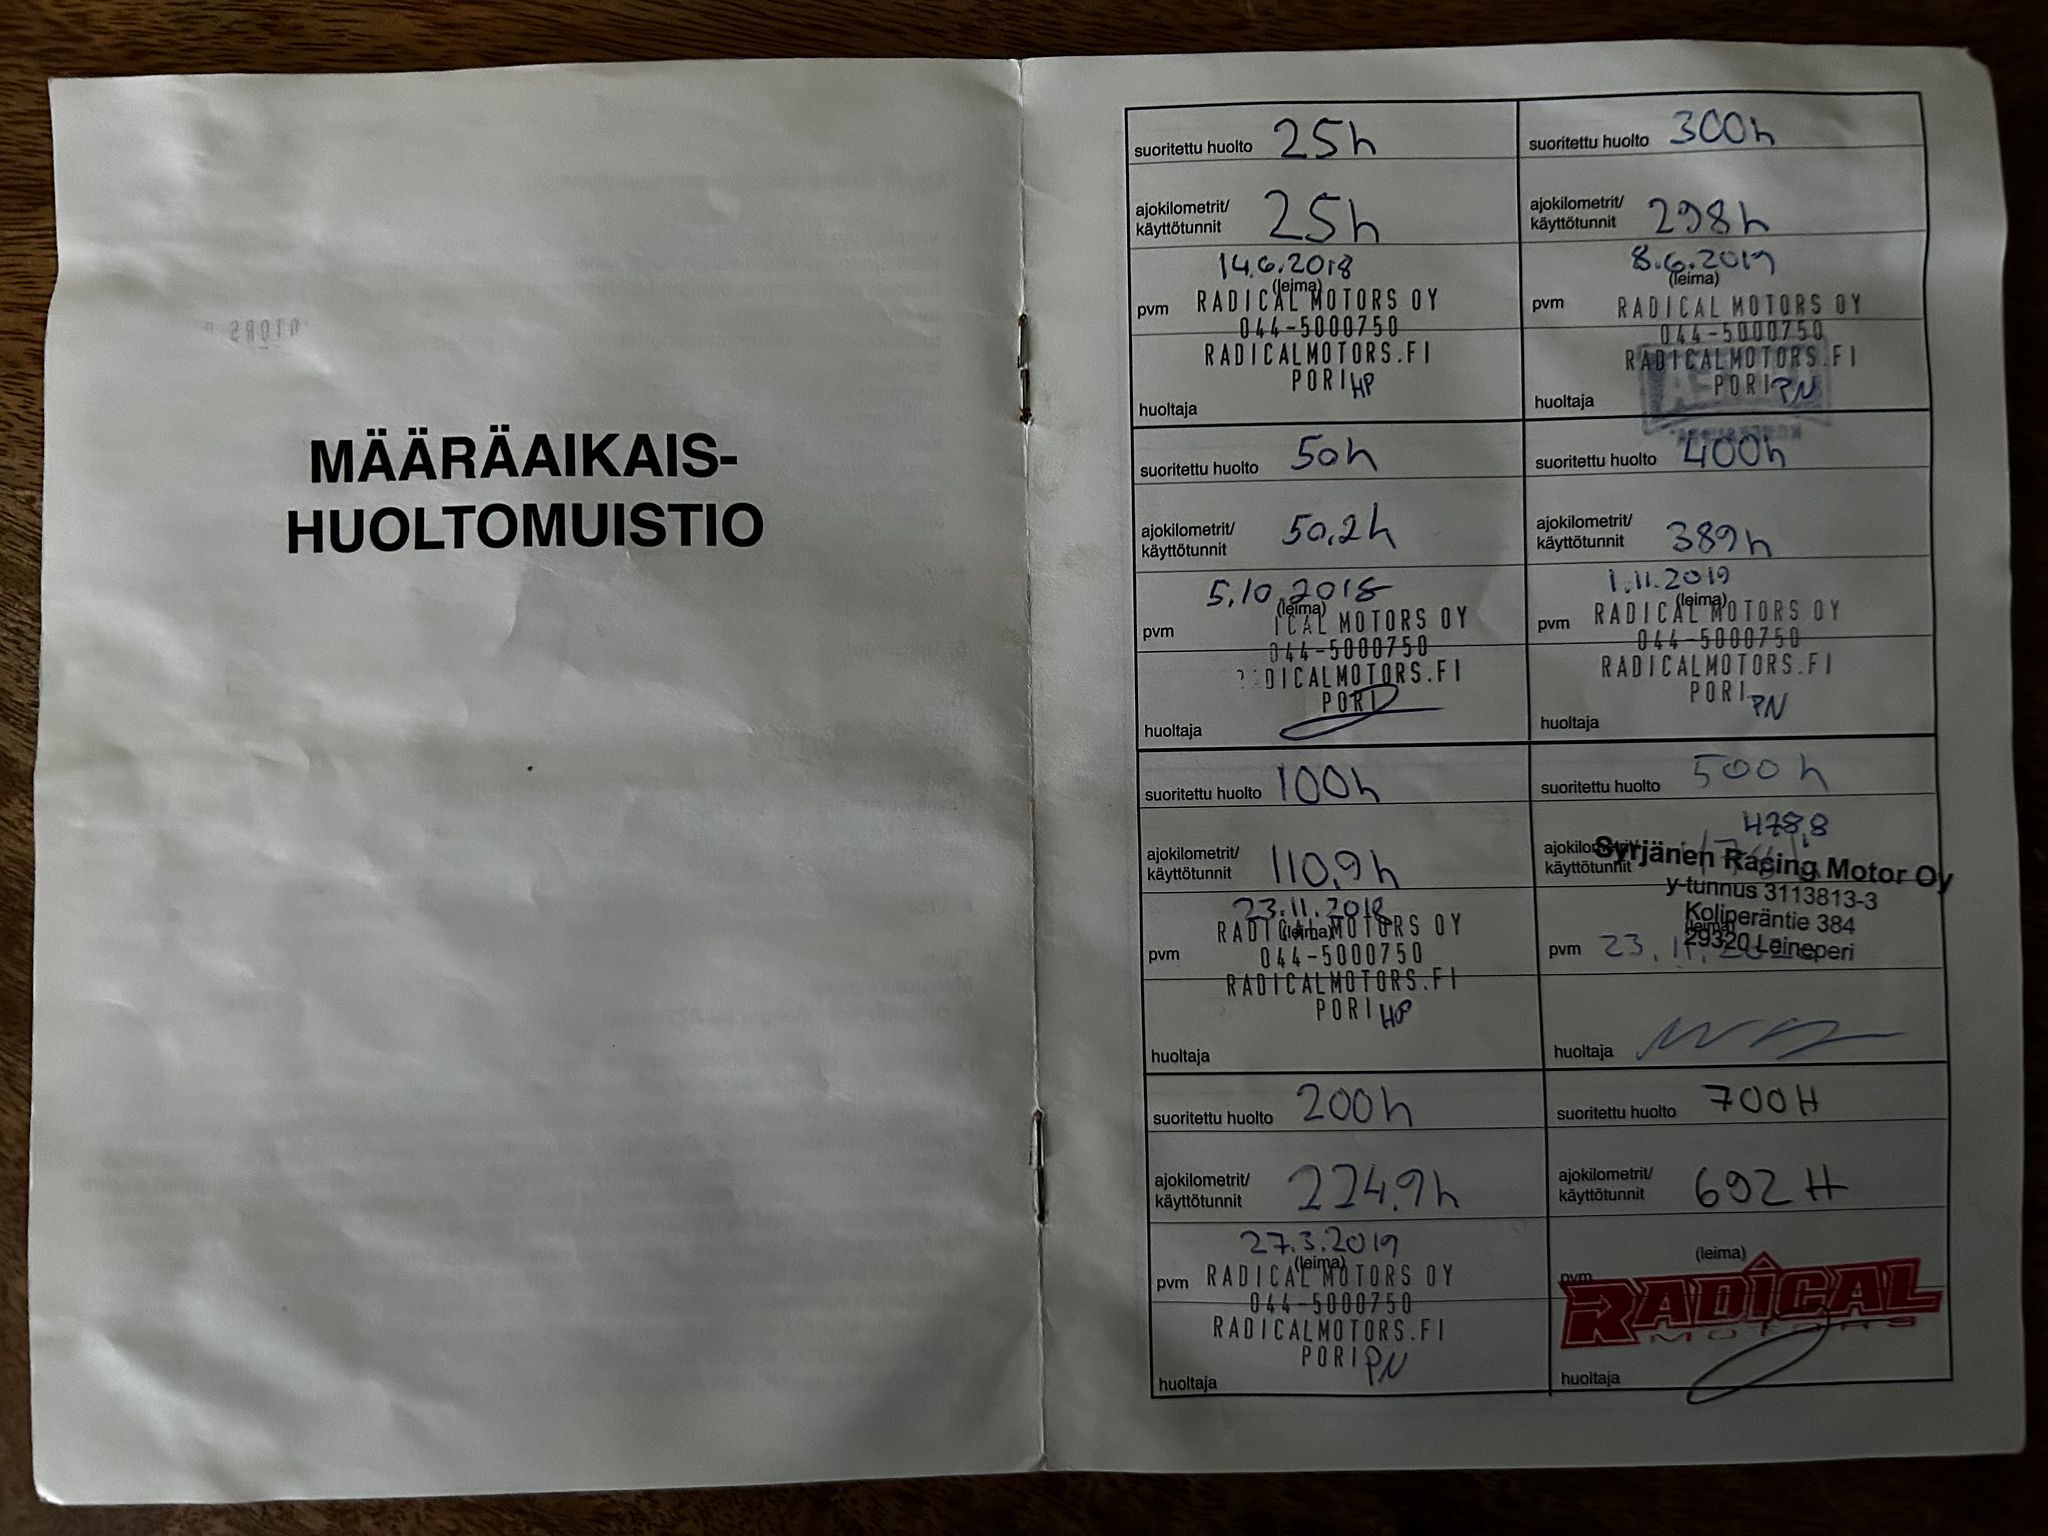 MÄÄRÄAIKAIS-
HUOLTOMUISTIO
suoritettu huolto 25h
ajokilometrit/
käyttötunnit 25h
14.6.2018
(leima)
pvm RADICAL MOTORS OY
044-5000750
RADICALMOTORS.FI
PORI HP
huoltaja
suoritettu huolto 50h
ajokilometrit/
käyttötunnit 50,2h
5.10.2018
(leima)
ICAL MOTORS OY
pvm
044-5000750
DICALMOTORS.FI
PORI
huoltaja
suoritettu huolto 100h
ajokilometrit/
käyttötunnit 110,9h
23.11.2018
(leima)
RADICAL MOTORS OY
pvm 044-5000750
RADICALMOTORS.FI
PORI HP
huoltaja
suoritettu huolto 200h
ajokilometrit/
käyttötunnit 224,9h
27.3.2019
(leima)
pvm RADICAL MOTORS OY
044-5000750
RADICALMOTORS.FI
PORI PN
huoltaja
suoritettu huolto 300h
ajokilometrit/
käyttötunnit 298h
8.6.2019
(leima)
pvm RADICAL MOTORS OY
044-5000750
RADICALMOTORS.FI
PORI PN
huoltaja
suoritettu huolto 400h
ajokilometrit/
käyttötunnit 389h
1.11.2019
(leima)
pvm RADICAL MOTORS OY
044-5000750
RADICALMOTORS.FI
PORI PN
huoltaja
suoritettu huolto 500h
478,8
ajokilometrit/
käyttötunnit
Syrjänen Racing Motor Oy
y-tunnus 3113813-3
Koliperäntie 384
(leima)
29320 Leineperi
pvm 23.11.
huoltaja
suoritettu huolto 700H
ajokilometrit/
käyttötunnit 692H
(leima)
pvm
RADICAL
MOTORS
huoltaja